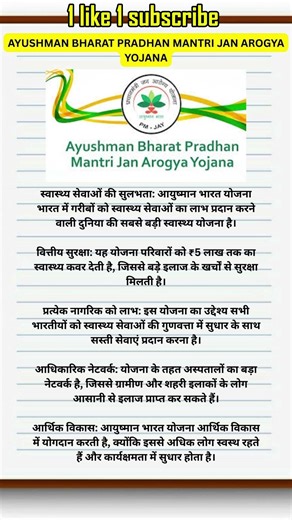 1 like 1 subscribe
AYUSHMAN BHARAT PRADHAN MANTRI JAN AROGYA
YOJANA
प्रधानमंत्री जन आरोग्य योजना
आयुष्मान भारत
PM - JAY
Ayushman Bharat Pradhan
Mantri Jan Arogya Yojana
स्वास्थ्य सेवाओं की सुलभता: आयुष्मान भारत योजना
भारत में गरीबों को स्वास्थ्य सेवाओं का लाभ प्रदान करने
वाली दुनिया की सबसे बड़ी स्वास्थ्य योजना है।
वित्तीय सुरक्षा: यह योजना परिवारों को ₹5 लाख तक का
स्वास्थ्य कवर देती है, जिससे बड़े इलाज के खर्चों से सुरक्षा
मिलती है।
प्रत्येक नागरिक को लाभ: इस योजना का उद्देश्य सभी
भारतीयों को स्वास्थ्य सेवाओं की गुणवत्ता में सुधार के साथ
सस्ती सेवाएं प्रदान करना है।
आधिकारिक नेटवर्क: योजना के तहत अस्पतालों का बड़ा
नेटवर्क है, जिससे ग्रामीण और शहरी इलाकों के लोग
आसानी से इलाज प्राप्त कर सकते हैं।
आर्थिक विकास: आयुष्मान भारत योजना आर्थिक विकास
में योगदान करती है, क्योंकि इससे अधिक लोग स्वस्थ रहते
हैं और कार्यक्षमता में सुधार होता है।